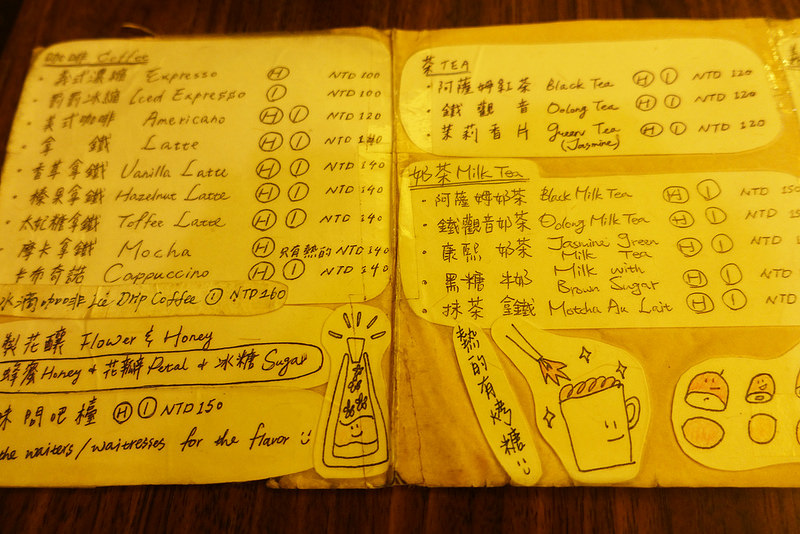 咖啡 Coffee
· 義式濃縮 Expresso H NTD 100
· 爵爵冰縮 Iced Expresso I NTD 100
· 美式咖啡 Americano H I NTD 120
· 拿 鐵 Latte H I NTD 140
· 香草拿鐵 Vanilla Latte H I NTD 140
· 榛果拿鐵 Hazelnut Latte H I NTD 140
· 太妃糖拿鐵 Toffee Latte H I NTD 140
· 摩卡拿鐵 Mocha H 只有熱的 NTD 140
卡布奇諾 Cappuccino H I NTD 140
冰滴咖啡 Ice Drip Coffee I NTD 160
製花釀 Flower & Honey
蜂蜜 Honey + 花瓣 Petal + 冰糖 Sugar
味 問吧檯 H I NTD 150
the waiters/waitresses for the flavor
茶 TEA
· 阿薩姆紅茶 Black Tea H I NTD 120
· 鐵 觀 音 Oolong Tea H I NTD 120
· 茉莉香片 Green Tea H I NTD 120
(Jasmine)
奶茶 Milk Tea
· 阿薩姆奶茶 Black Milk Tea H I NTD 150
· 鐵觀音奶茶 Oolong Milk Tea H I NTD
· 康熙 奶茶 Jasmine Green Milk Tea H I NTD
· 黑糖 牛奶 Milk with Brown Sugar H I NTD
· 抹茶 拿鐵 Motcha Au Lait H I NTD
熱的有烤糖